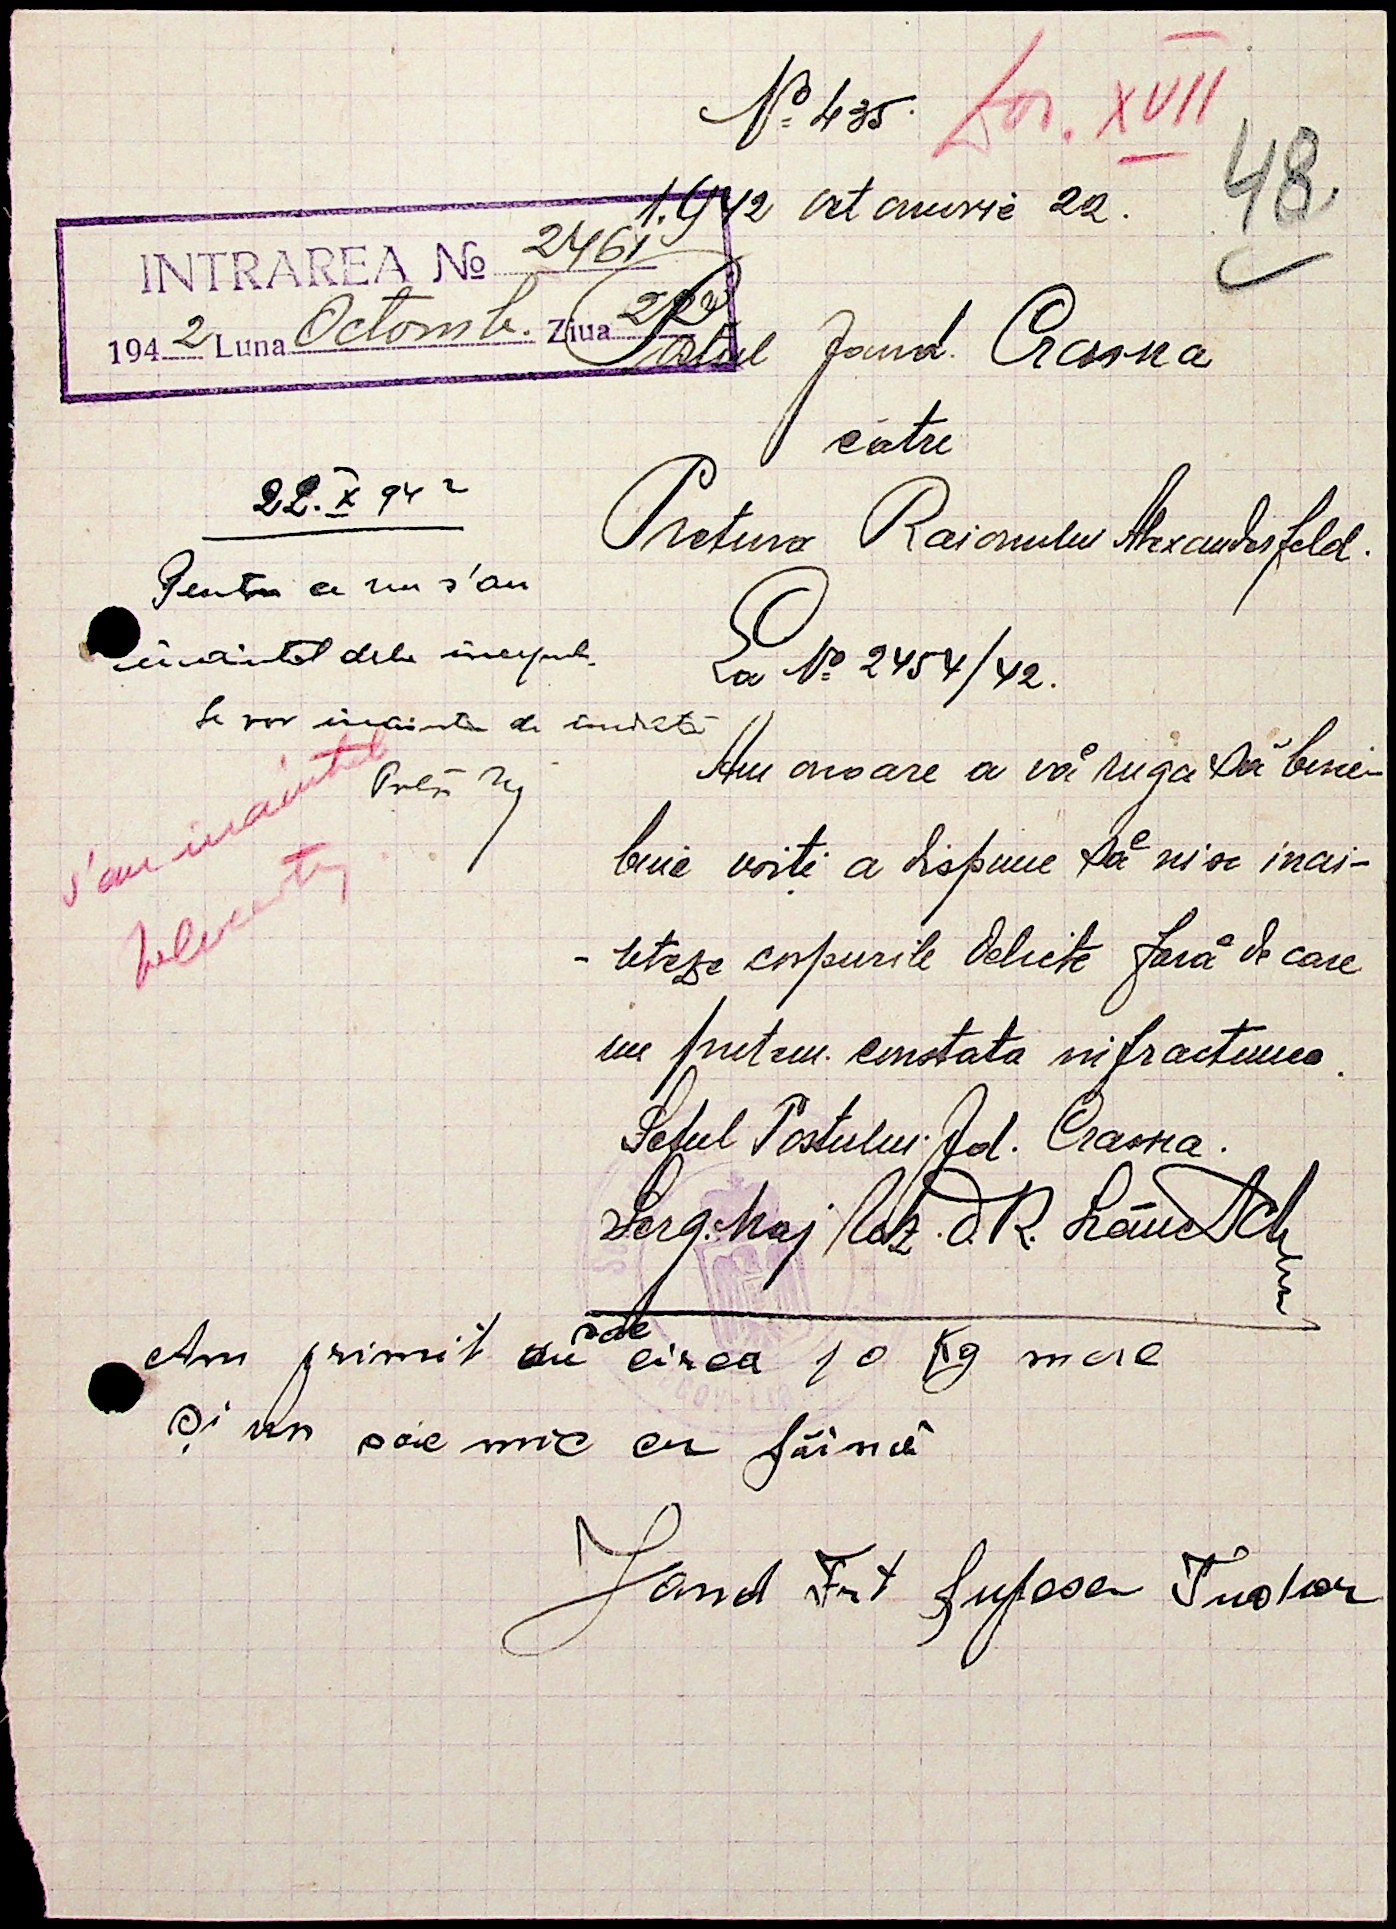 No 435.
Dos. XVII
48.
1.942 octomvrie 22.
INTRAREA No 2461
1942 Luna Octomb. Ziua 22
Postul Jand. Crasna
către
Pretura Raionului Alexanderfeld.
La No 2454/42.
Am onoare a vă ruga să bine-
buie voiți a dispune să ni se inai-
-nteze corpurile delicte fără de care
nu putem constata infractiunea.
Șeful Postului Jd. Crasna.
Serg. Maj Rez. D. R.
22.X 942
Pentru ce nu s'au
inaintat dela inceput.
Se vor inainta de indată
s'au inaintat
Am primit un sac circa 10 Kg mare
Și un sac mic cu făină
Jand Frt Tudor